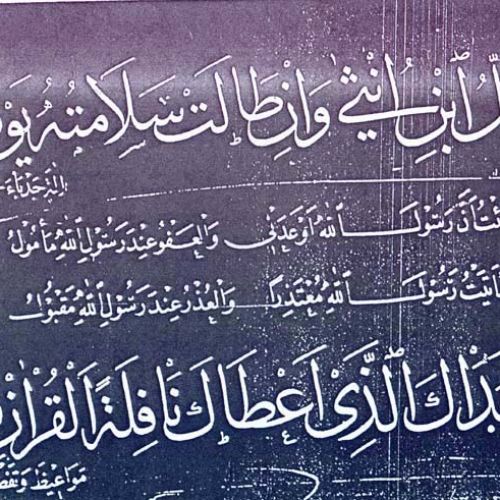 ـلُّ ابْنِ اُنْثٰى وَاِنْ طَالَتْ سَلَامَتُهُ يَوْ
اٰلَةٍ حَدْبَاءَ
ـئْتُ اَنَّ رَسُولَ اللهِ اَوْعَدَنِى وَالْعَفْوُ عِنْدَ رَسُولِ اللهِ مَأْمُولُ
ـاَتَيْتُ رَسُولَ اللهِ مُعْتَذِرًا وَالْعُذْرُ عِنْدَ رَسُولِ اللهِ مَقْبُولُ
ـدَاكَ الَّذِى اَعْطَاكَ نَافِلَةَ الْقُرْاٰنِ
مَوَاعِيظٌ وَتَفْصـ